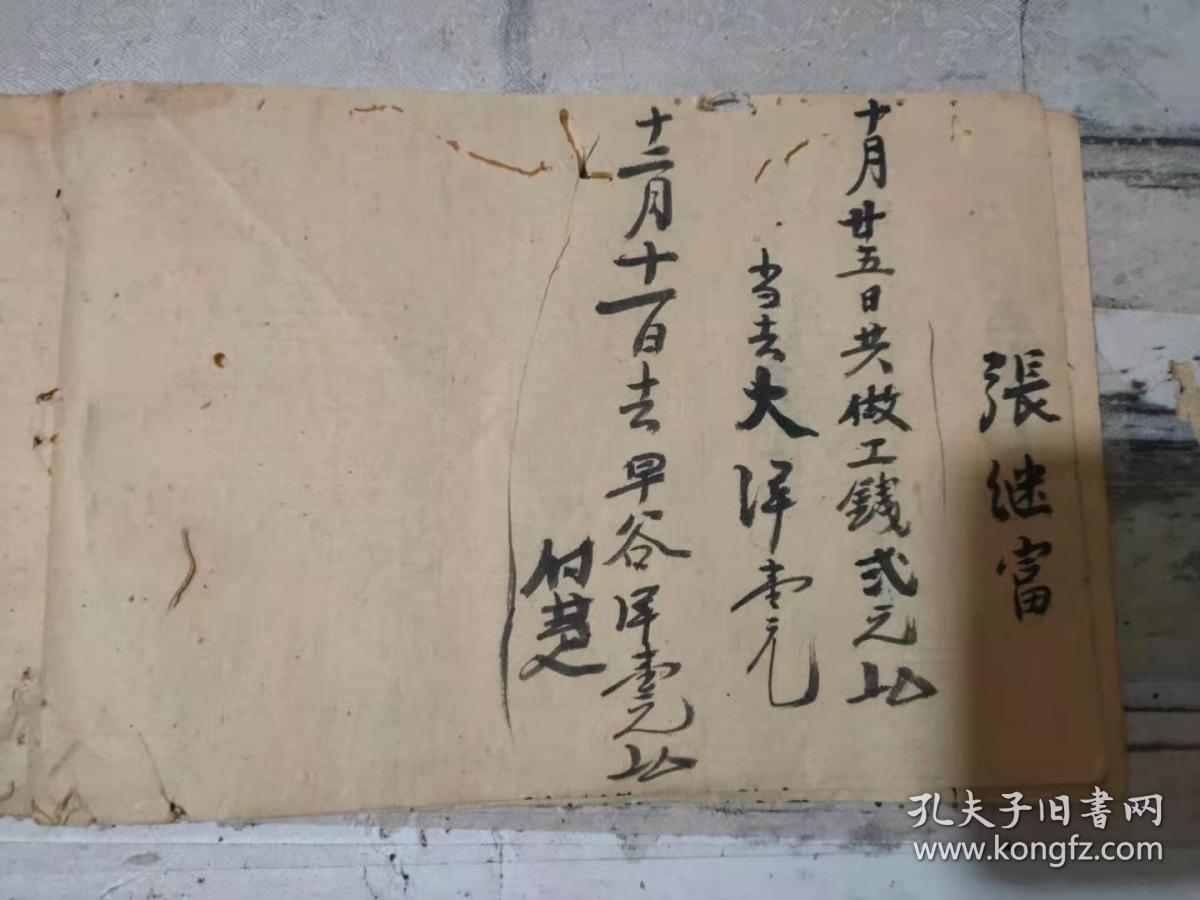 張继富
十月廿五日共做工錢弍元
当去大洋壹元
十二月十一日去早谷洋壹元
付楚
孔夫子旧書网
www.kongfz.com